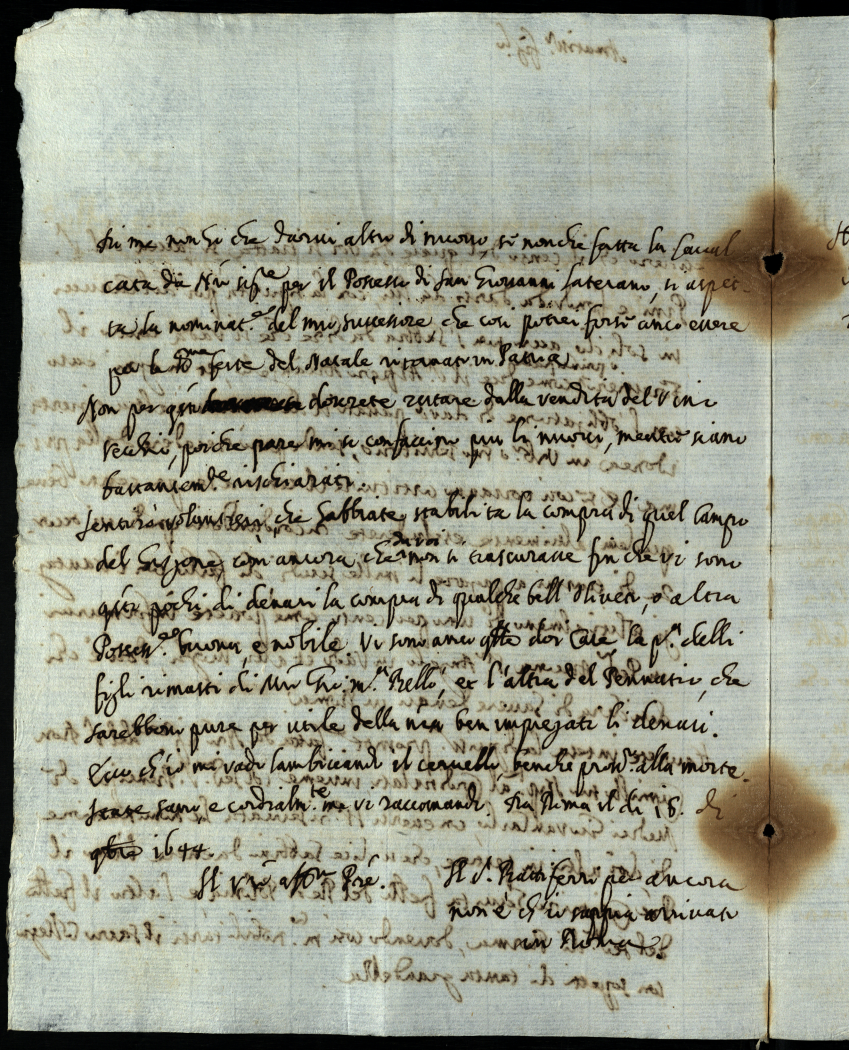 Di me non hò che darvi altro di nuovo, se non che fatta la Caval
cata da N.ro Sig.re per il Possesso di San Giovanni Laterano, si aspet-
ta la nominat.ne del mio successore che così potrei forse anco essere
per la feste del Natale ritornato in Patria.
Non per q.to dovrete restare dalla vendita del Vini
vecchi, poiche pare mi si confaccino più li nuovi, mentre siano
bastantem.te rischiarati.
Sentirò volontieri, che habbiate stabilita la compra di quel Campo
del com' ancora, che da voi non si trascurasse fin che vi sono
q.ti pochi di denari la compra di qualche bell' Oliveto, o altra
Possess.ne buona, e nobile. Vi sono anco q.ste doi Case la p.a delli
figli rimasti di M.ro Gio: m.a Bello, et l'altra del che
sarebbon pure per utile della mia ben impiegati li denari.
Ecco ch'io mi vado lambiccando il cervello, benche pross.o alla morte.
state sano, e cordialm.te mi vi raccomando. Da Roma il di 16. di
9bre 1644.
Il V.ro aff.mo P.re.
Il S. Rattiferri per ancora
non è ch'io sappia arrivato
in Roma.